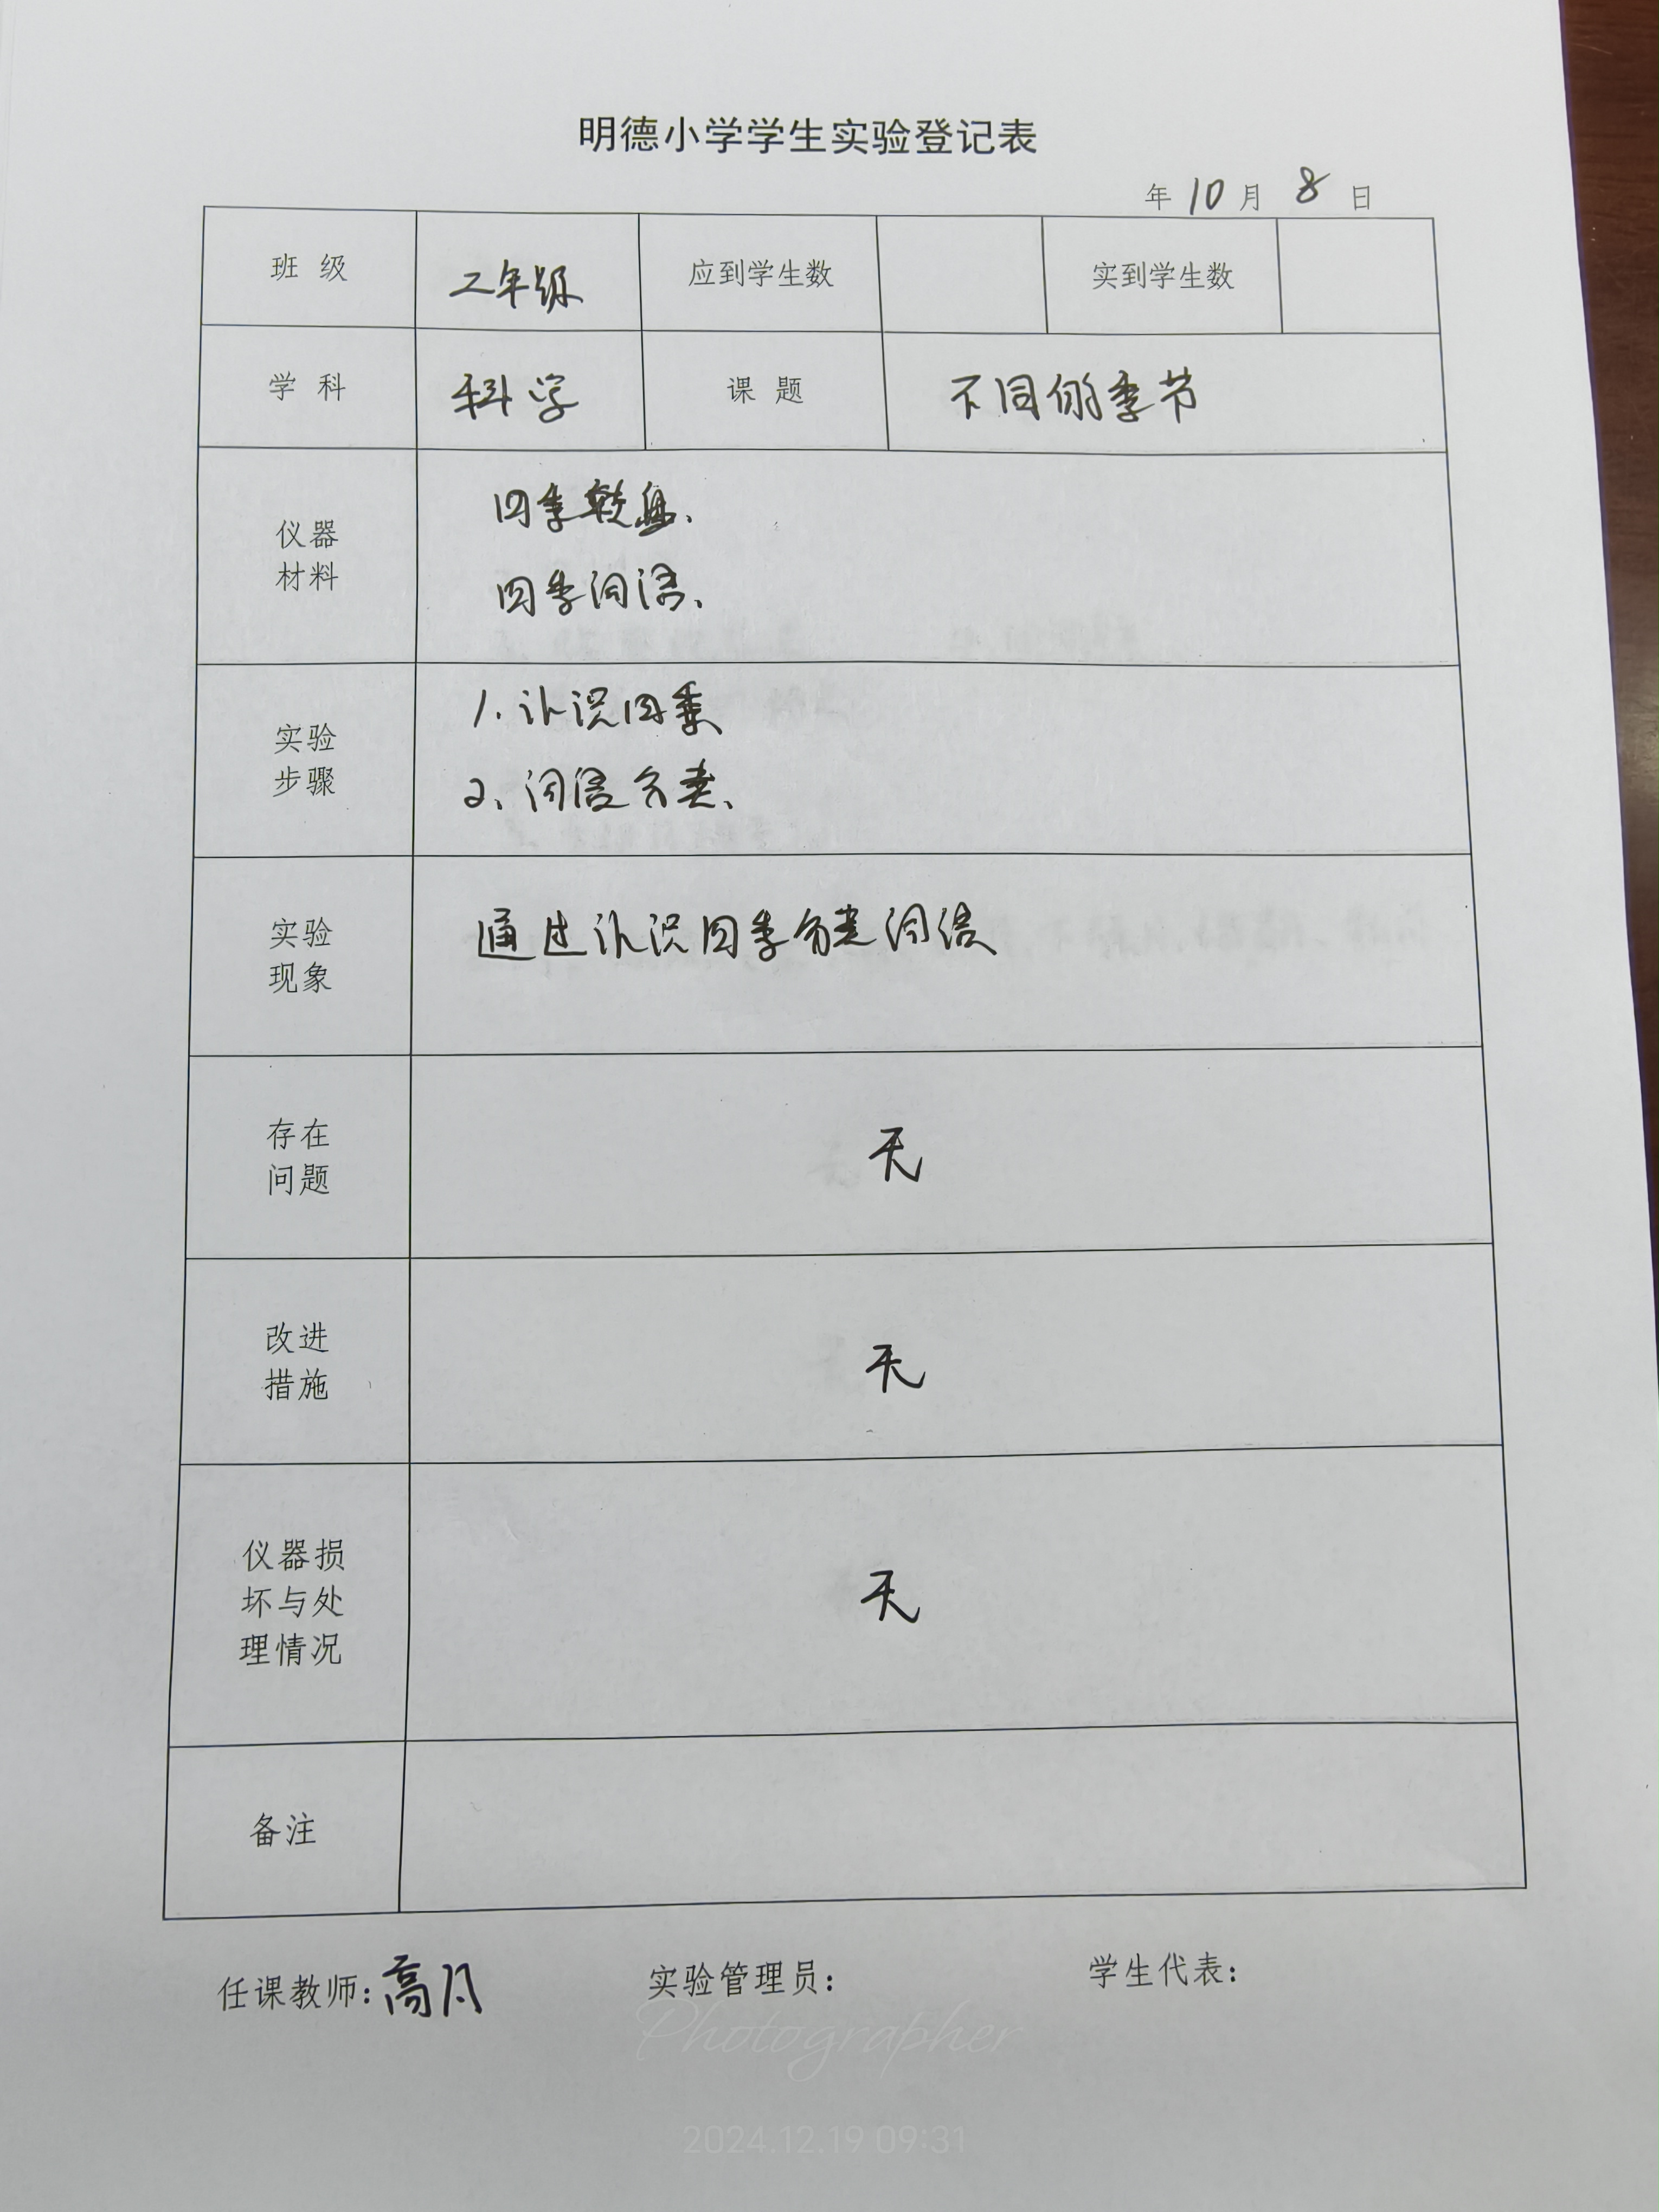 明德小学学生实验登记表
年 10 月 8 日
班 级 二年级 应到学生数 实到学生数
学 科 科学 课 题 不同的季节
仪器
材料
四季转盘、
四季词语、
实验
步骤
1. 认识四季
2、词语分类、
实验
现象
通过认识四季分类词语
存在
问题
无
改进
措施
无
仪器损
坏与处
理情况
无
备注
任课教师:高月 实验管理员: 学生代表:
Photographer
2024.12.19 09:31